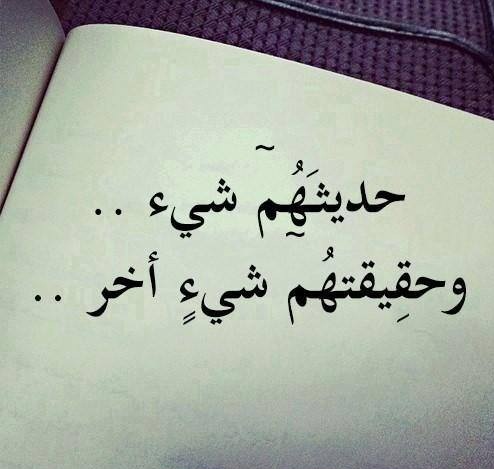 حديثَهُِمٓ شيء ..
وحقِيقتهُمٓ شيءٍ أخر ..